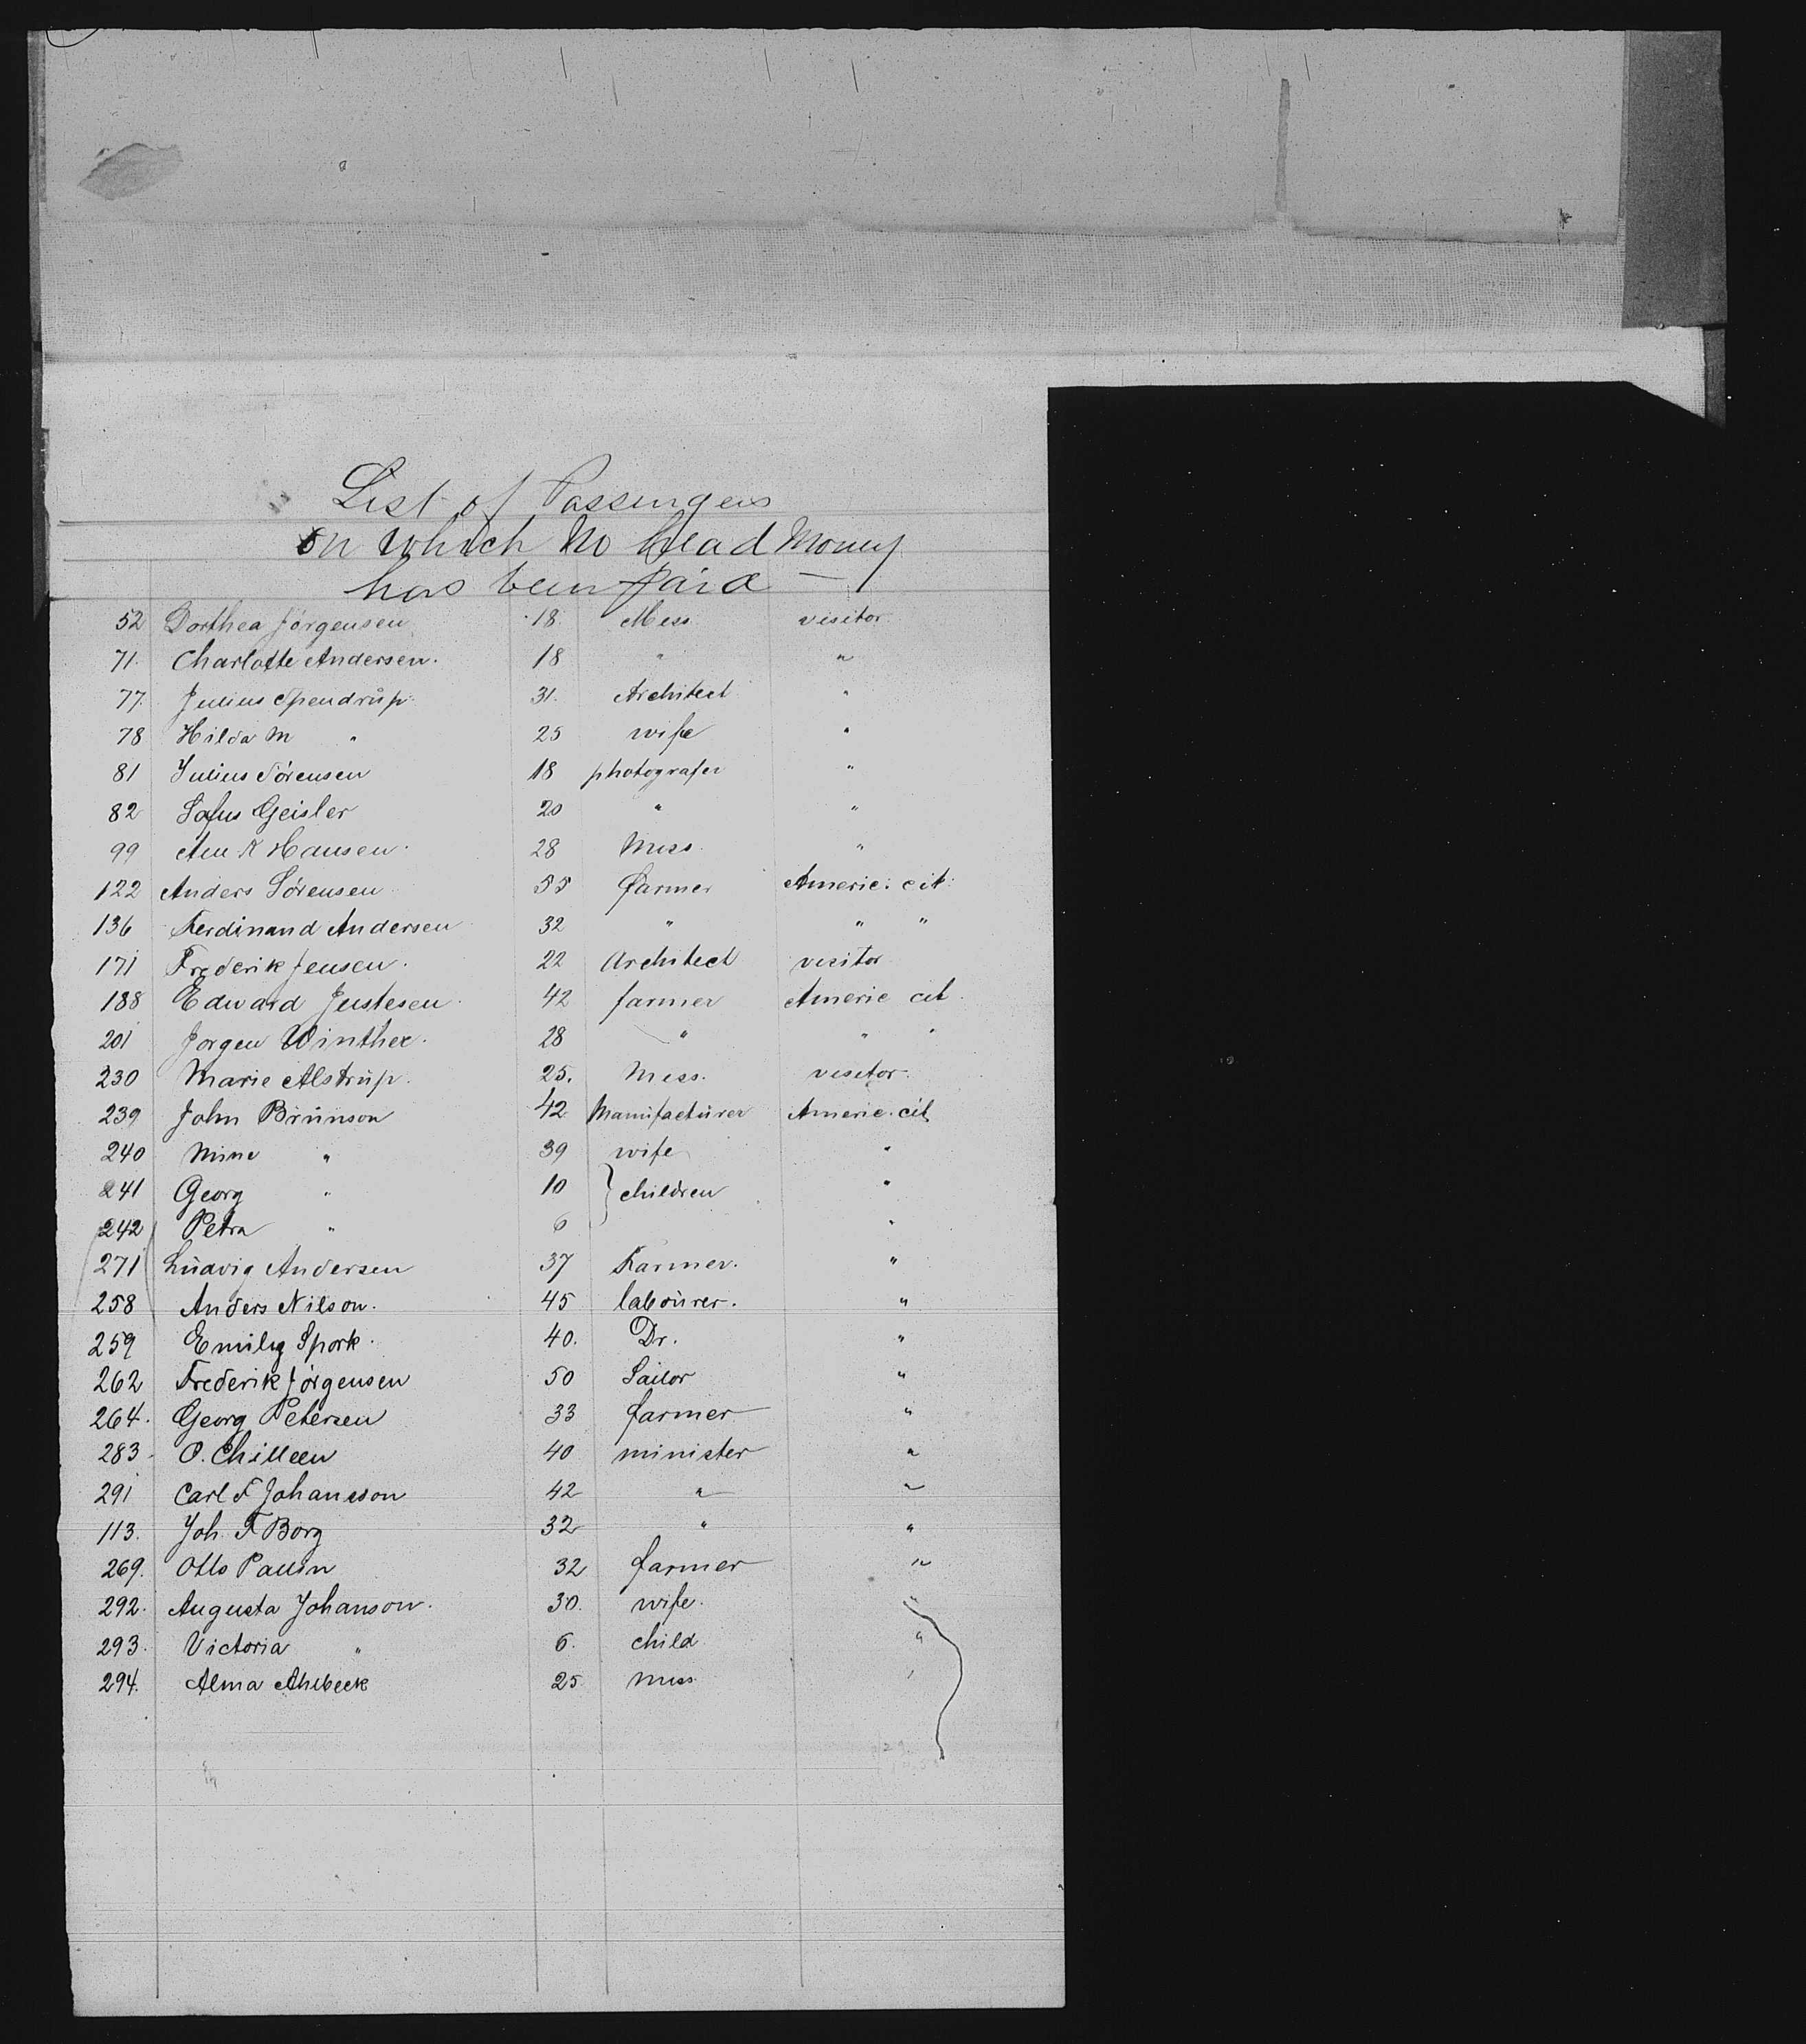 List of Passengers
on which no head Money
has been paid —
52 Dorthea Jörgensen 18 Miss visitor
71. Charlotte Andersen. 18 " "
77. Julius Spendrŭp 31. Architect "
78 Hilda M " 25 wife "
81 Julius Sörensen 18 photografer "
82 Sofus Geisler 20 " "
99 Ane K Hansen. 28 Miss "
122 Anders Sörensen 55 farmer Americ. cit.
136 Ferdinand Andersen 32 " " "
171 Frederik Jensen. 22 Architect visitor
188 Edward Justesen. 42 farmer Americ cit.
201 Jorgen Winther. 28 " " "
230 Marie Alstrŭp. 25. Miss. visitor.
239 John Brŭnson 42 Manŭfactŭrer Americ. cit
240 Mine " 39 wife "
241 Georg " 10 } children "
242 Petra " 6 "
271 Lŭdvig Andersen 37 Farmer. "
258 Anders Nilson. 45 laboŭrer. "
259 Emily Spork. 40. Dr. "
262 Frederik Jörgensen 50 Sailor "
264. Georg Petersen 33 farmer "
283 O. Chilleen 40 minister "
291 Carl F Johansson 42 " "
113. Joh. F Borg 32 " "
269. Otto Pallin 32 farmer "
292. Augusta Johanson. 30. wife. "
293. Victoria " 6. child "
294. Alma Ahlbeck 25 Miss "